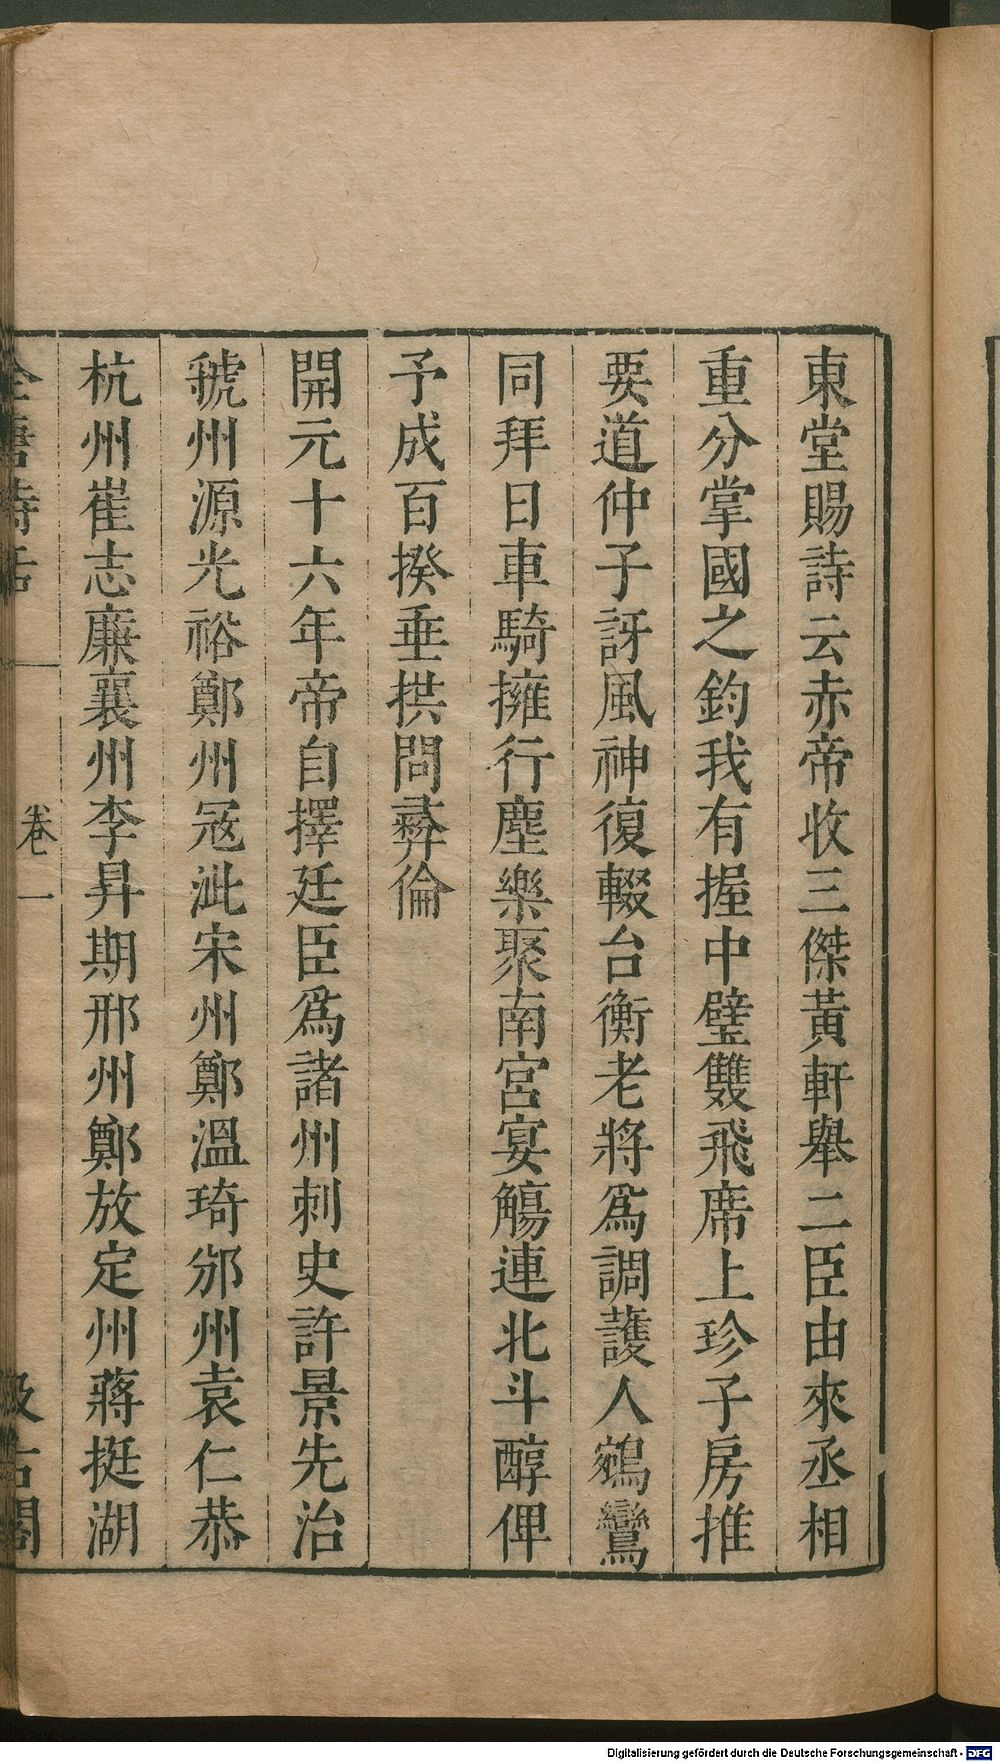 東堂賜詩云赤帝收三傑黃軒舉二臣由來丞相
重分掌國之鈞我有握中璧雙飛席上珍子房推
要道仲子訝風神復輟台衡老將爲調護人鵷鸞
同拜日車騎擁行塵樂聚南宮宴觴連北斗醇俾
予成百揆垂拱問彞倫
開元十六年帝自擇廷臣爲諸州刺史許景先治
虢州源光裕鄭州寇泚宋州鄭溫琦邠州袁仁恭
杭州崔志廉襄州李昇期邢州鄭放定州蔣挺湖
全唐詩話 卷一 汲古閣
Digitalisierung gefördert durch die Deutsche Forschungsgemeinschaft - DFG